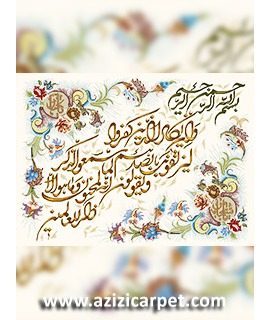 بسم الله الرحمن الرحيم
وان يكاد الذين كفروا
ليزلقونك بابصارهم لما سمعوا الذكر
ويقولون انه لمجنون وما هو الا
ذكر للعالمين
www.azizicarpet.com